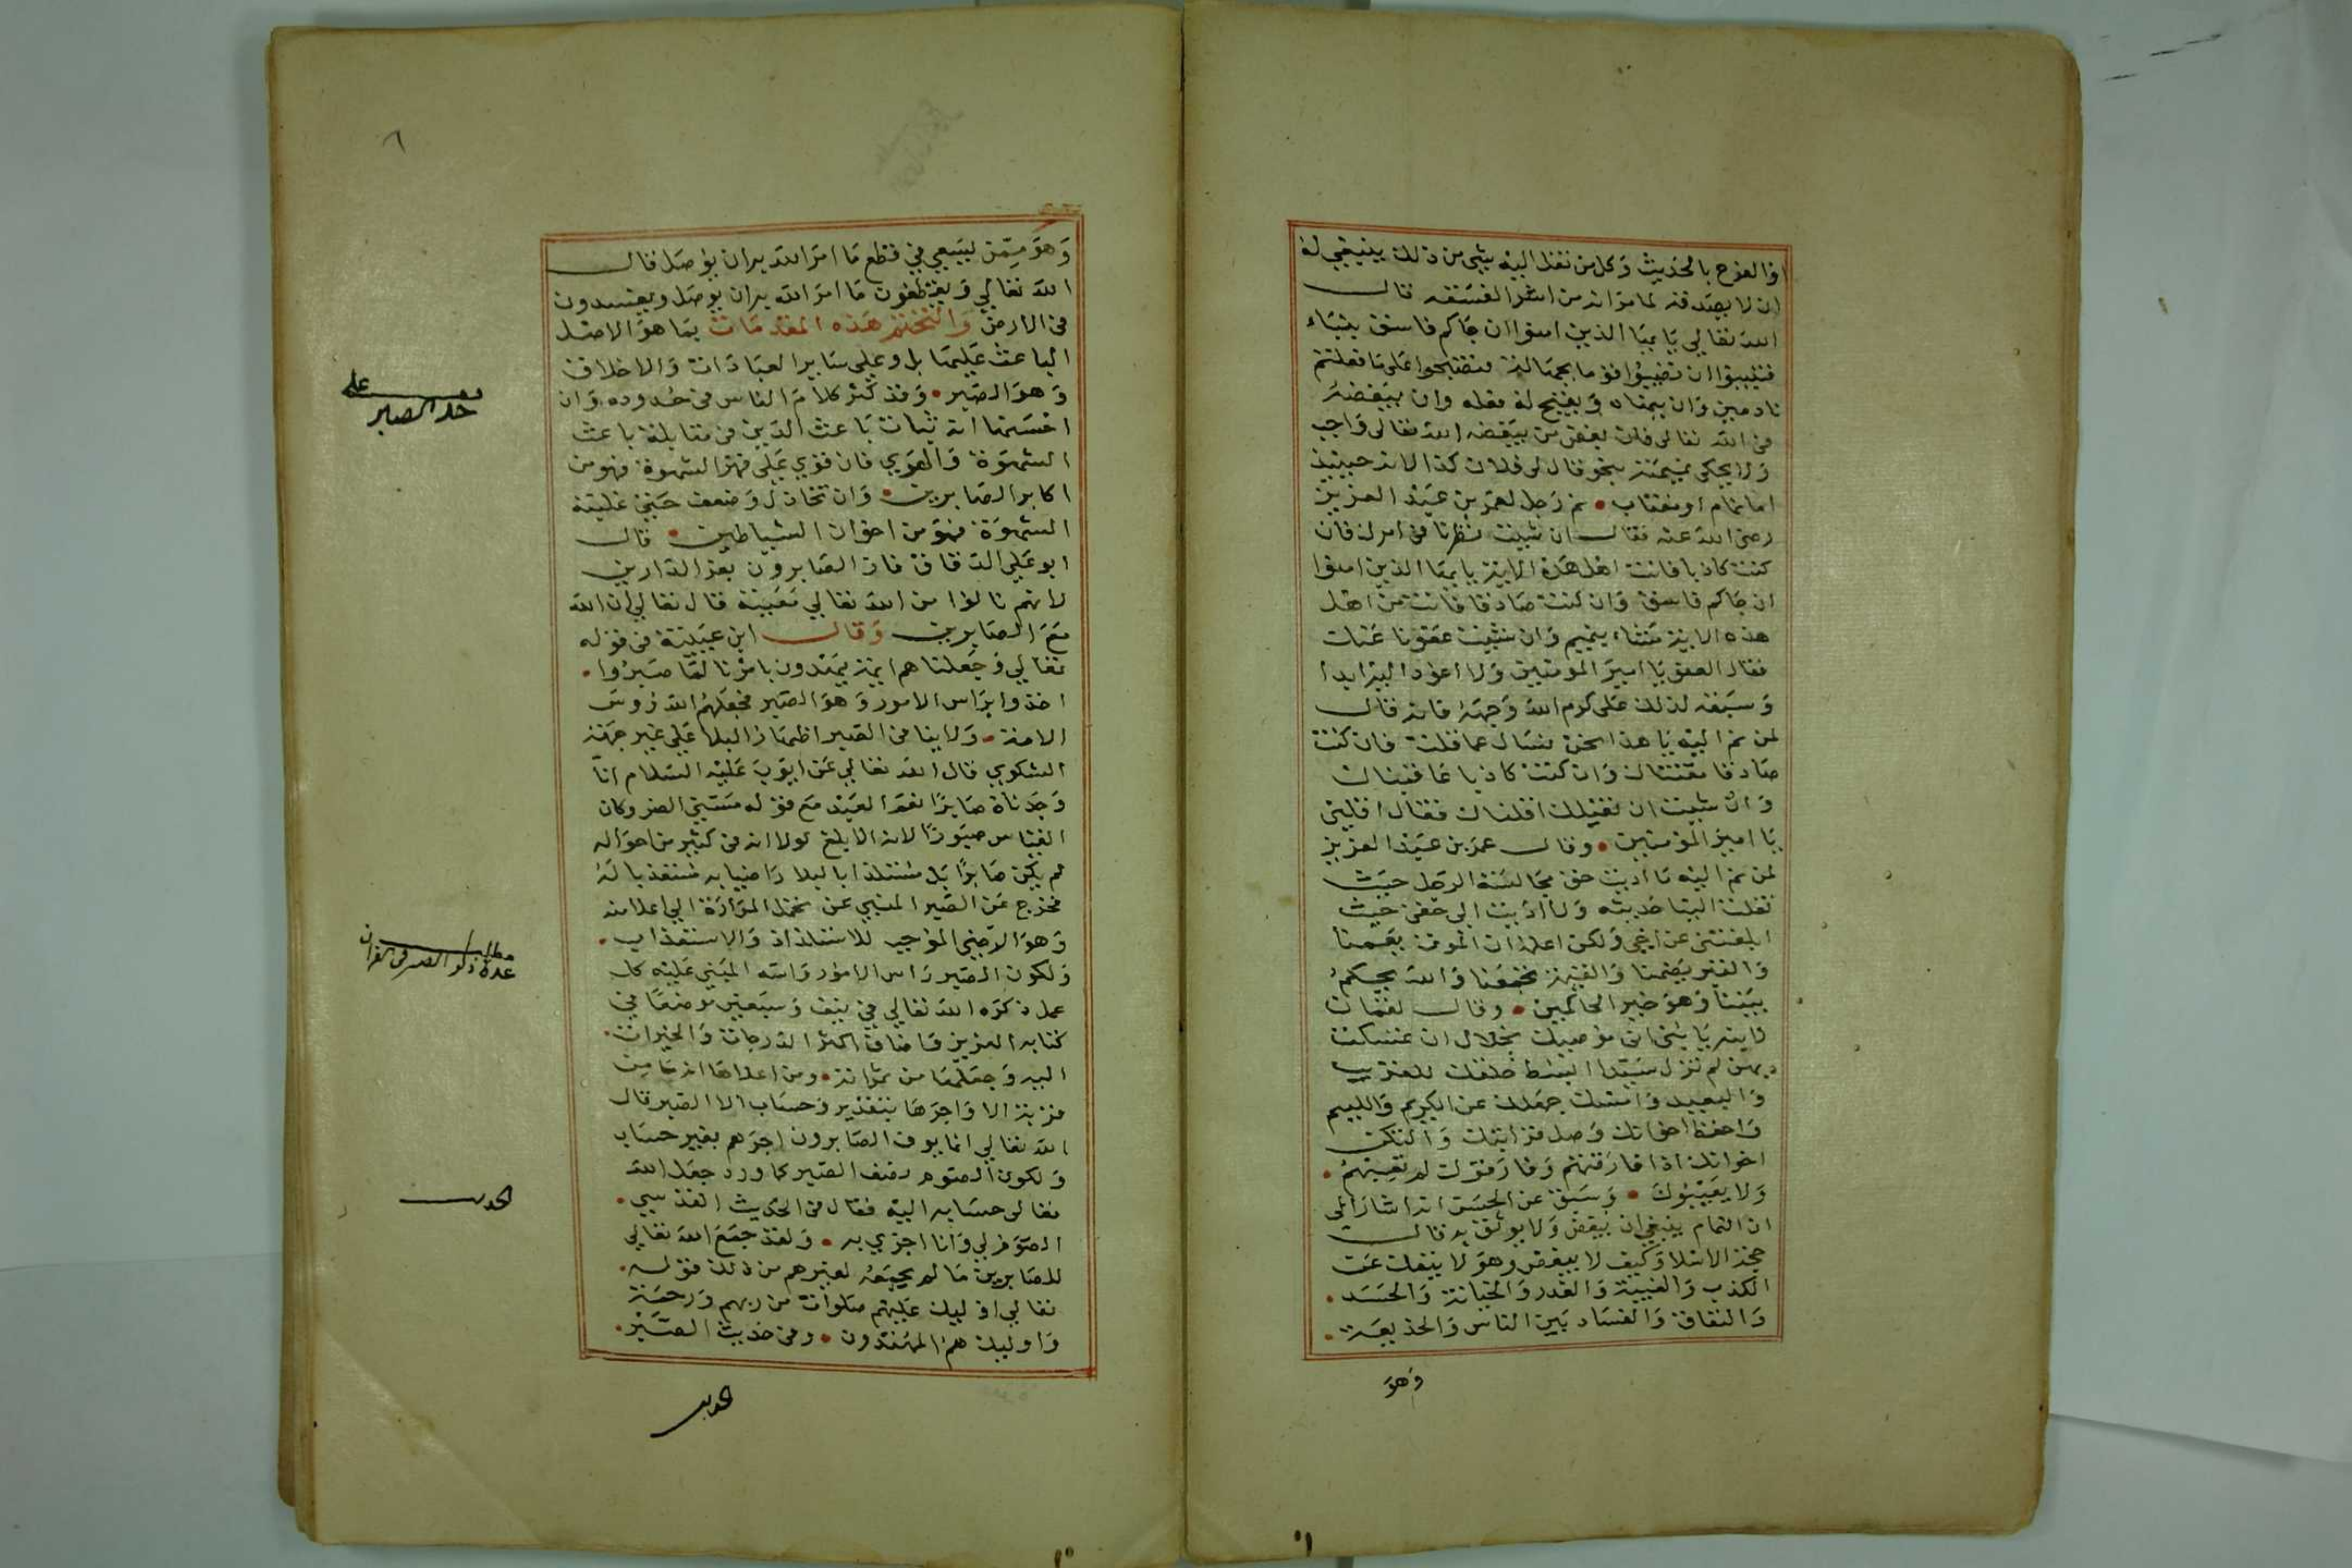 او الفرح بالحديث وكل من نقل اليه شي من ذلك ينبغي له
ان لا يصدقه لما مر انه من اشر الفسقه قال
الله تعالى يا ايها الذين امنوا ان جاكم فاسق بنباء
فتبينوا ان تصيبوا قوما بجهالة فتصبحوا على ما فعلتم
نادمين وان ينهاه ويقبح له فعله وان يبغضه
في الله تعالى فان بغض من يبغضه الله تعالى واجب
ولا يحكي نميمته بنحو قال لي فلان كذا لانه حينيذ
اما نمام او مغتاب • نم رجل لعمر بن عبد العزيز
رضي الله عنه فقال ان شيت نظرنا في امرك فان
كنت كاذبا فانت اهل هذه الاية يا ايها الذين امنوا
ان جاكم فاسق وان كنت صادقا فانت من اهل
هذه الاية مشاء بنميم وان شيت عفونا عنك
فقال العفو يا امير المومنين ولا اعود اليه ابدا
وسبقه لذلك على كرم الله وجهه فانه قال
لمن نم اليه يا هذا نحن نسال عما قلت فان كنت
صادقا مقتناك وان كنت كاذبا عاقبناك
وان شيت ان نقيلك اقلناك فقال اقلني
يا امير المومنين • وقال عمر بن عبد العزيز
لمن نم اليه ما اديت حق مجالسة الرجل حيث
نقلت الينا حديثه ولا اديت الي حقي حيث
ابلغتني عن اخي ولكن اعلم ان الموت يعمنا
والقبر يضمنا والقيمة تجمعنا والله يحكم
بيننا وهو خير الحاكمين • وقال لقمان
لابنه يا بني اني موصيك بخلال ان تمسكت
بهن لم تزل سيدا ابسط خلقك للقريب
والبعيد وامسك جهلك عن الكريم واللييم
واحفظ اخوانك وصل قرابتك وليكن
اخوانك اذا فارقتهم وفارقوك لم تعبهم •
ولا يعيبوك • وسبق عن الحسن انه اشار الي
ان النمام ينبغي ان يبغض ولا يوثق به قال
حجة الاسلام وكيف لا يبغض وهو لا ينفك عن
الكذب والغيبة والغدر والخيانة والحسد •
والنفاق والفساد بين الناس والخديعة •
وهو
وهو ممن يسعي في قطع ما امر الله به ان يوصل قال
الله تعالي ويقطعون ما امر الله به ان يوصل ويفسدون
في الارض ولنختم هذه المقدمات بما هو الاصل
الباعث عليها بل وعلي ساير العبادات والاخلاق
وهو الصبر • وقد كثر كلام الناس في حدوده وان
احسنها انه ثبات باعث الدين في مقابلة باعث
الشهوة والهوي فان قوي علي قهر الشهوة فهو من
اكابر الصابرين • وان تخاذل وضعف حتي غلبته
الشهوة فهو من اخوان الشياطين • قال
ابو علي الدقاق فاز الصابرون بعز الدارين
لانهم نالوا من الله تعالي معيته قال تعالي ان الله
مع الصابرين وقال ابن عيينة في قوله
تعالي وجعلنا هم ايمة يهدون بامرنا لما صبروا •
اخذوا براس الامور وهو الصبر فجعلهم الله روس
الامة • ولا ينافي الصبر اظهار البلا علي غير جهة
الشكوي قال الله تعالي عن ايوب عليه السلام انا
وجدناه صابرا نعم العبد مع قوله مسني الضر وكان
القياس صبورا لانه الابلغ لولا انه في كثير من احواله
لم يكن صابرا بل مستلذا بالبلا راضيا به مستعذبا له
فخرج عن الصبر المنبي عن تحمل المرارة الي اعلا منه
وهو الرضي الموجب للاستلذاذ والاستعذاب •
ولكون الصبر راس الامور واسه المبني عليه كل
عمل ذكره الله تعالي في نيف وسبعين موضعا في
كتابه العزيز واضاف اكثر الدرجات والخيرات •
اليه وجعلها من ثمراته • ومن اعلاها انه ما من
قربة الا واجرها بتقدير وحساب الا الصبر قال
الله تعالي انما يوف الصابرون اجرهم بغير حساب
ولكون الصوم نصف الصبر كما ورد جعل الله
تعالى حسابه اليه فقال في الحديث القدسي •
الصوم لي وانا اجزي به • ولقد جمع الله تعالي
للصابرين ما لم يجمعه لغيرهم من ذلك قوله •
تعالي اوليك عليهم صلوات من ربهم ورحمة
واوليك هم المهتدون • وفي حديث الصبر •
على
حد الصبر
مطلب
عدة ذكر الصبر في القران
الحديث
الحديث